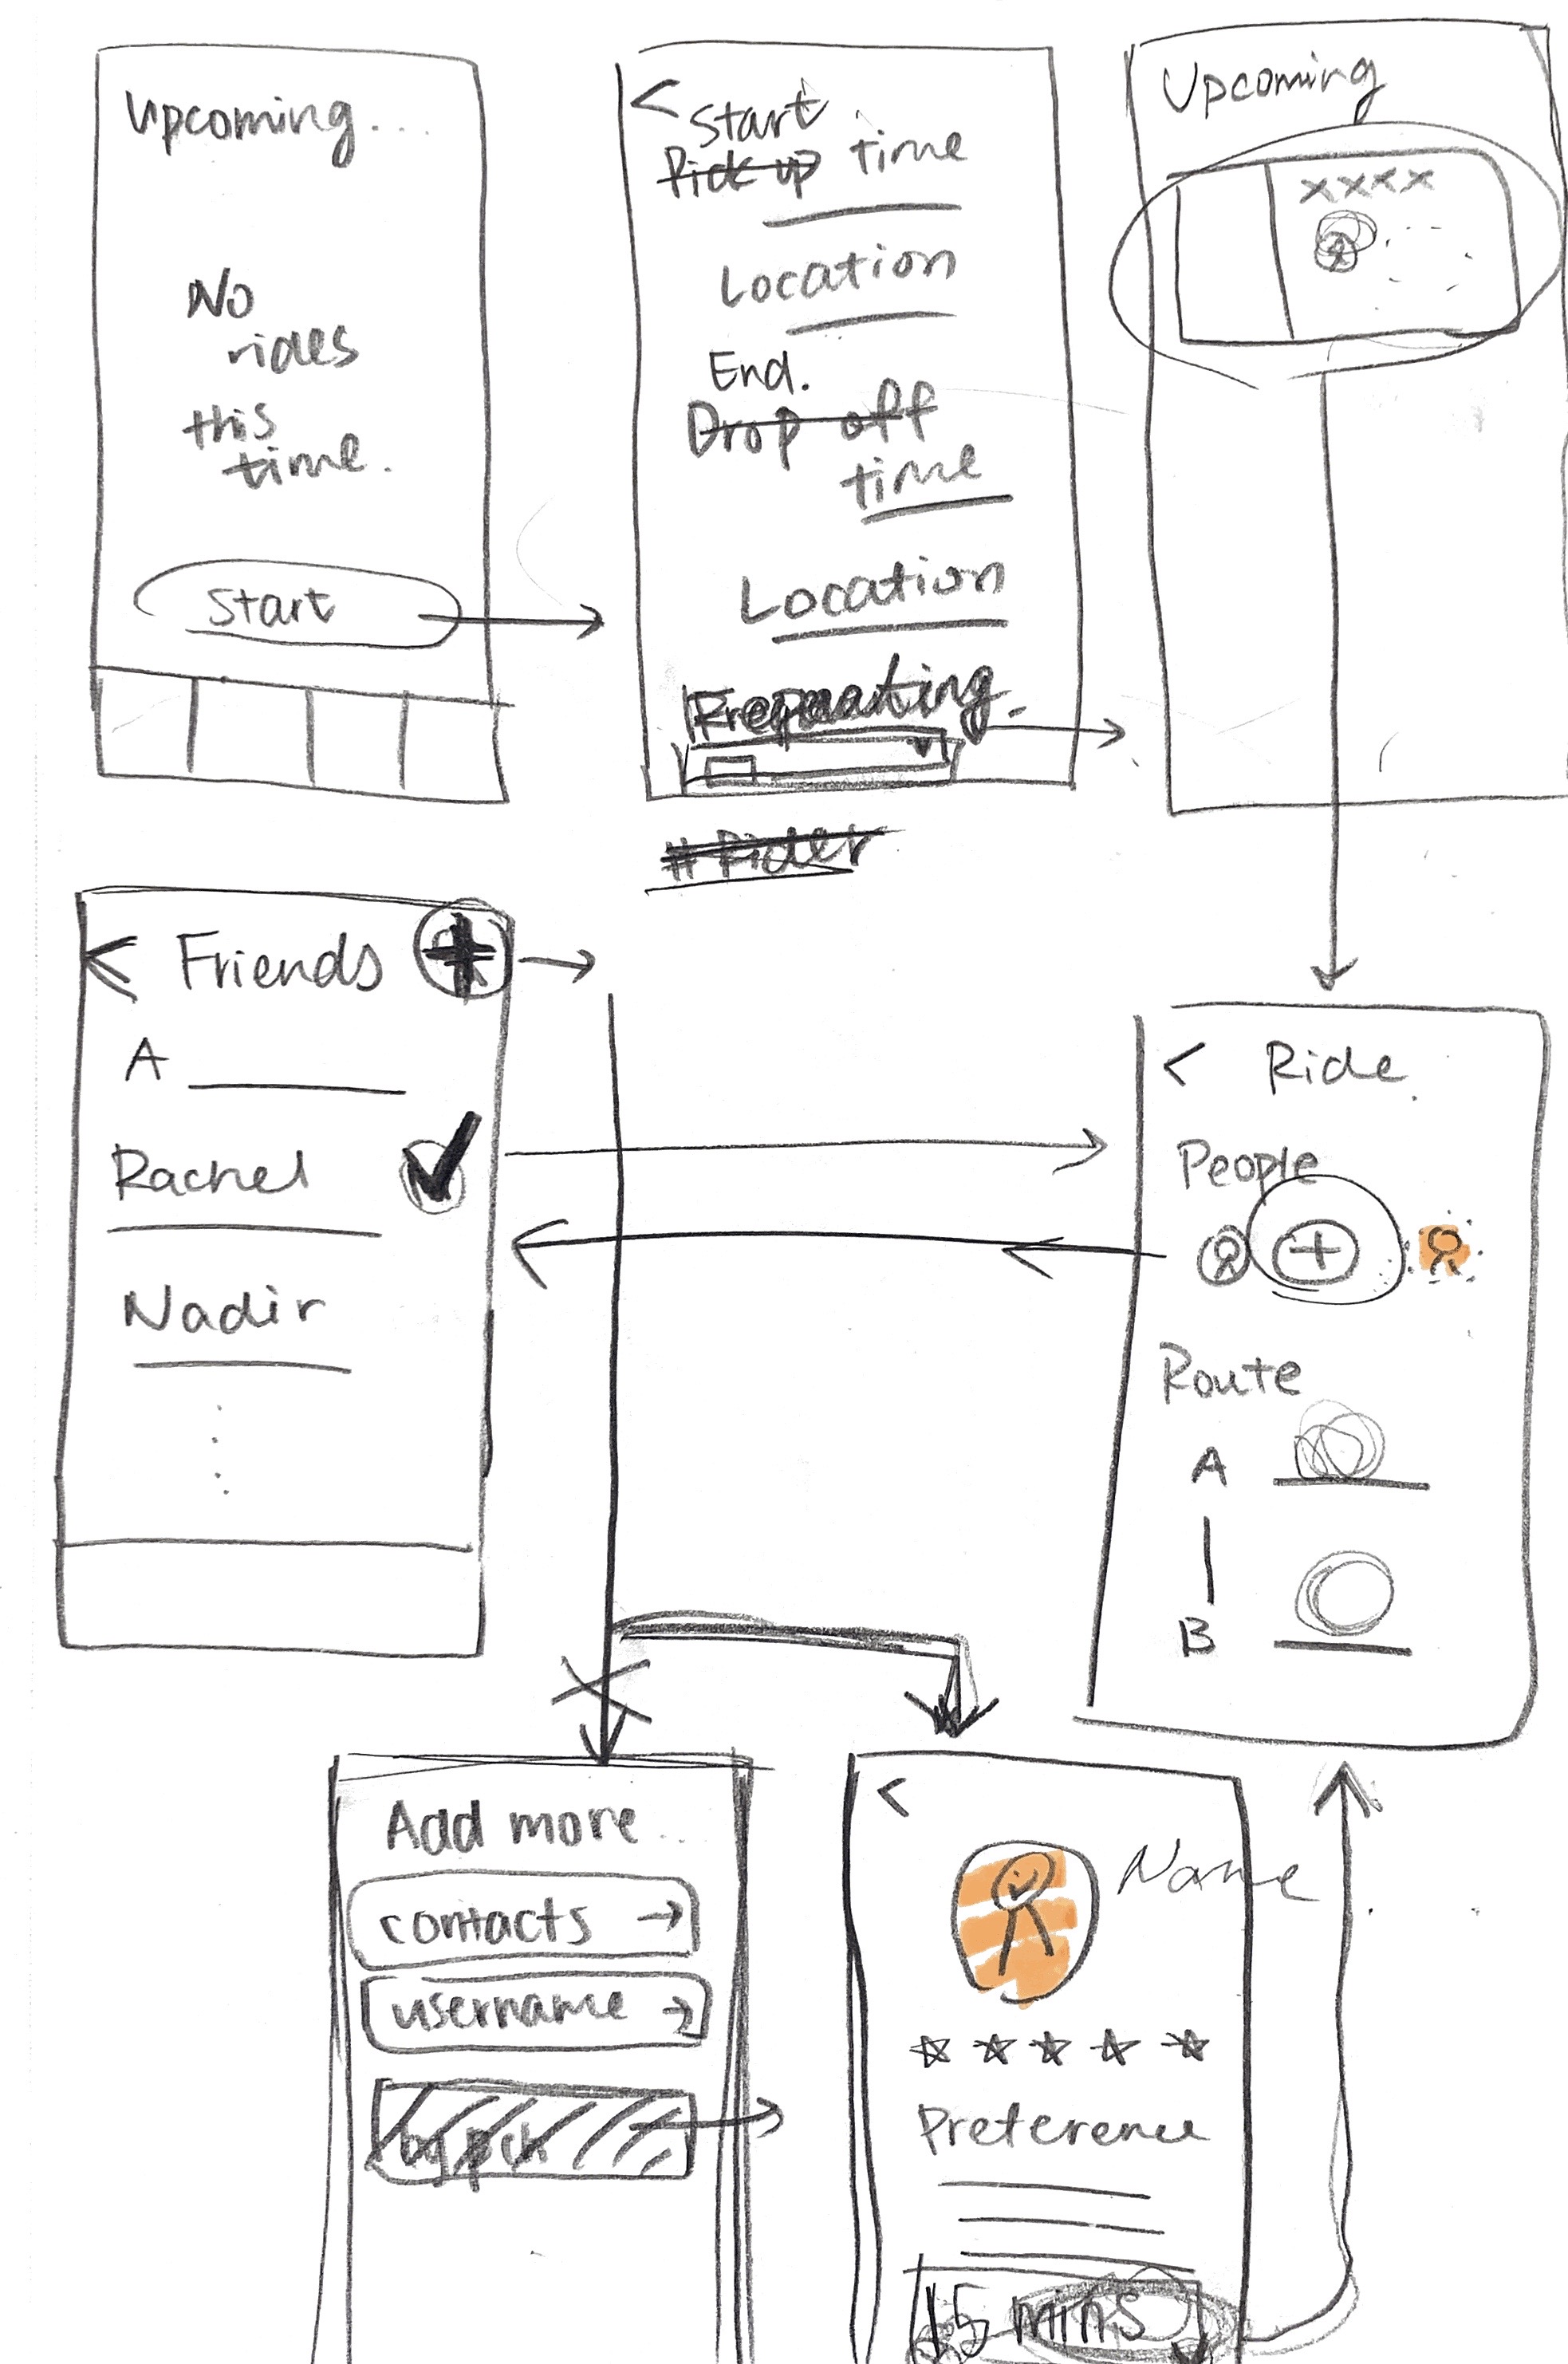 Upcoming...
No
rides
this
time.
Start
< Start
Pick up time
Location
End.
Drop off
time
Location
# Rider
Upcoming
xxxx
< Friends +
A
Rachel
Nadir
< Ride
People
+
Route
A
B
Add more..
contacts →
username →
<
Name
Preference
15 mins